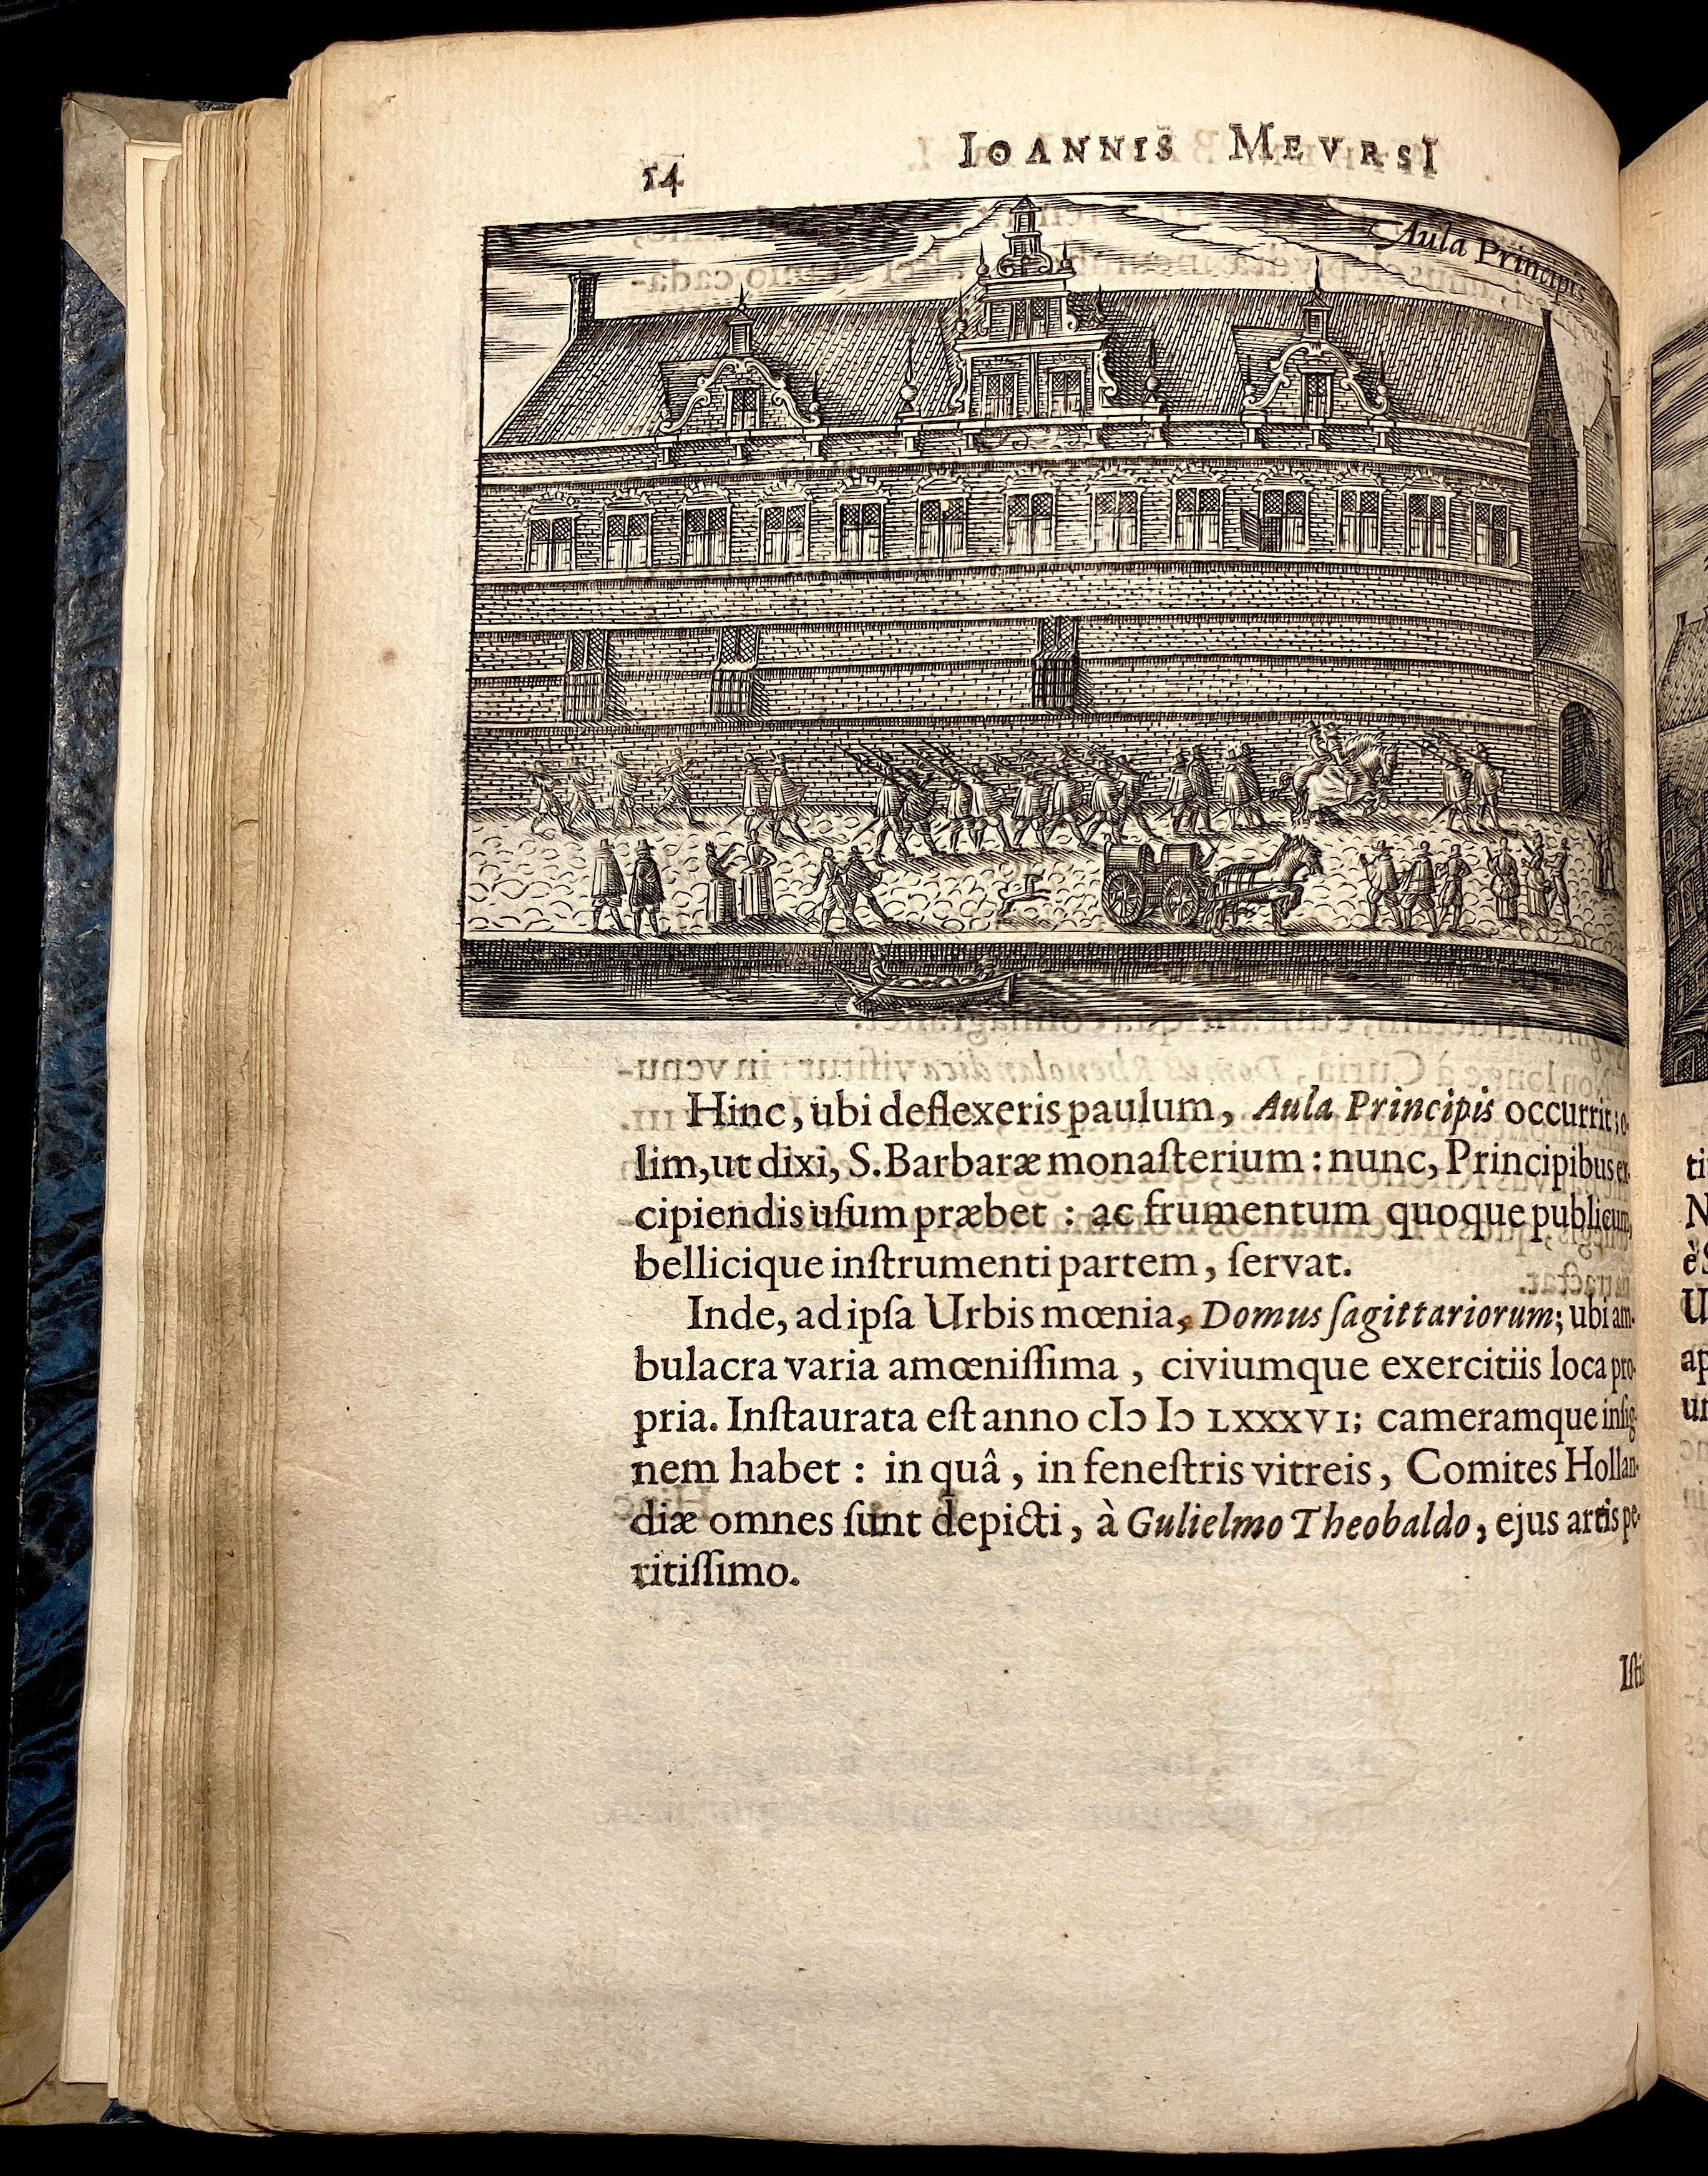 14
IOANNIS MEVRSI
Aula Principis
Hinc, ubi deflexeris paulum, Aula Principis occurrit; o-
lim, ut dixi, S. Barbaræ monaſterium: nunc, Principibus ex-
cipiendis uſum præbet: ac frumentum quoque publicum,
bellicique inſtrumenti partem, ſervat.
Inde, ad ipſa Urbis mœnia, Domus ſagittariorum; ubi am-
bulacra varia amœniſſima, civiumque exercitiis loca pro-
pria. Inſtaurata eſt anno cIↃ IↃ LXXXVI; cameramque inſig-
nem habet: in quâ, in feneſtris vitreis, Comites Hollan-
diæ omnes ſunt depicti, à Gulielmo Theobaldo, ejus artis pe-
ritiſſimo.